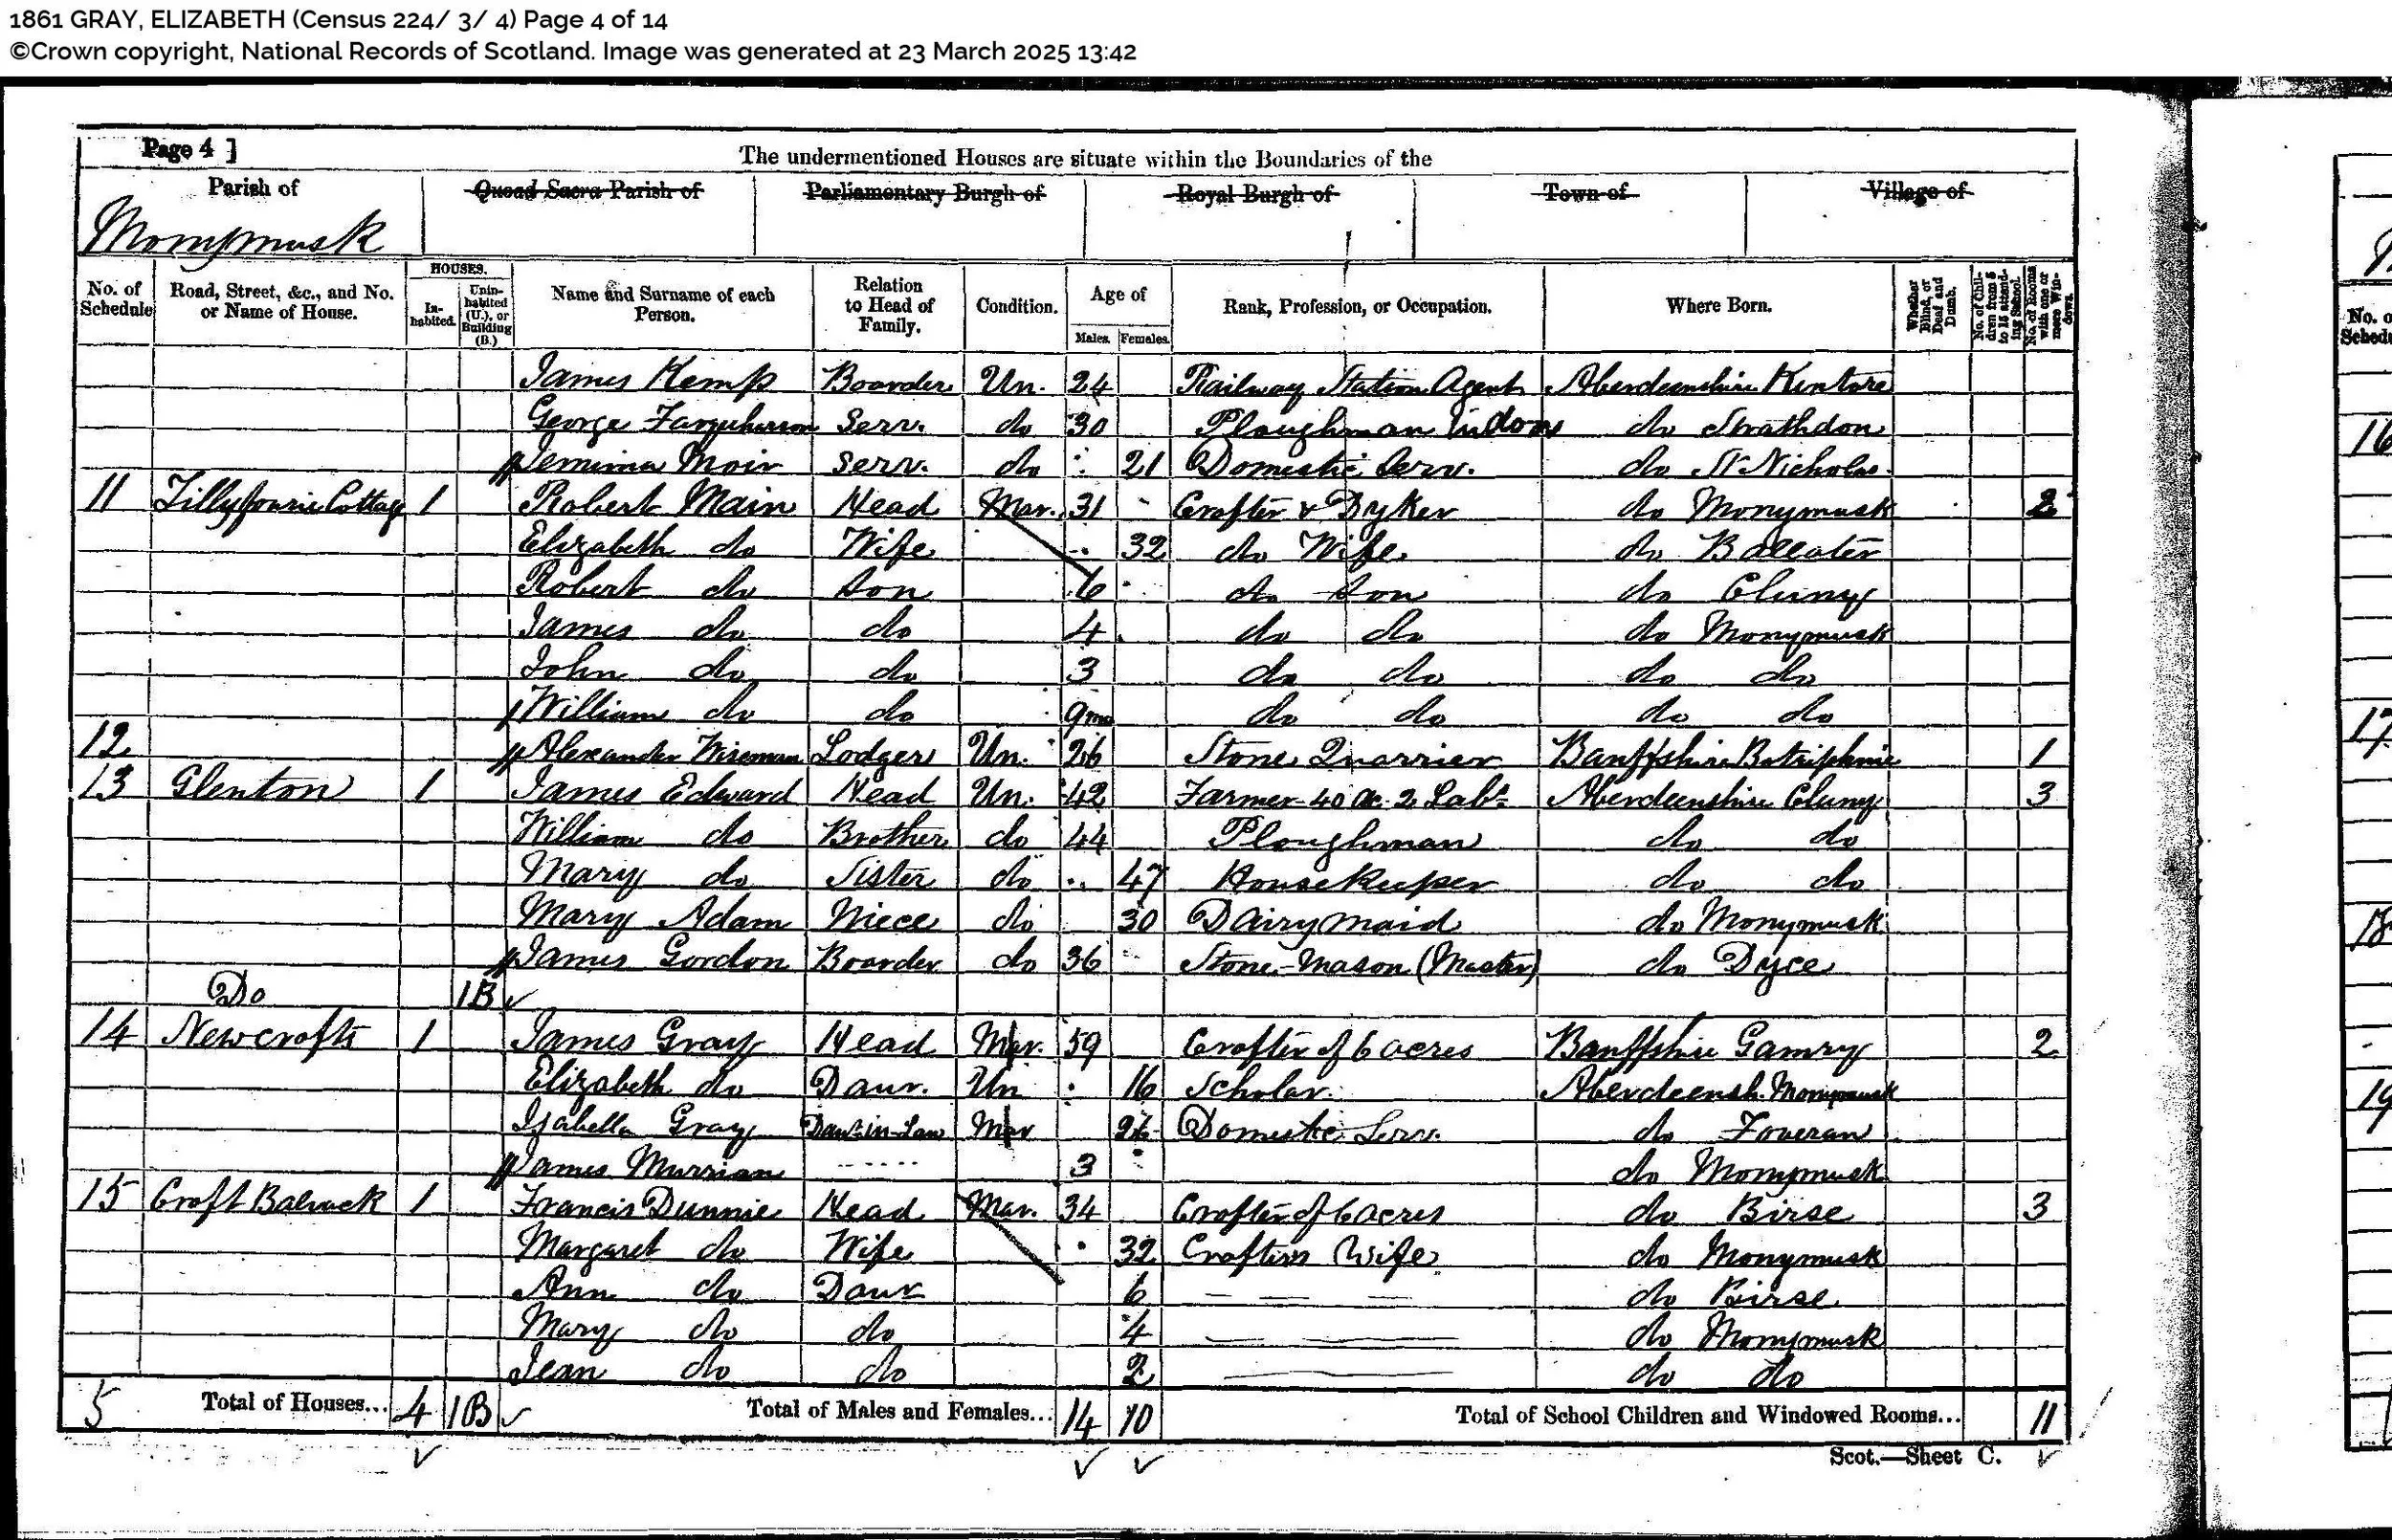 1861 GRAY, ELIZABETH (Census 224/ 3/ 4) Page 4 of 14
©Crown copyright, National Records of Scotland. Image was generated at 23 March 2025 13:42
Page 4 ]
The undermentioned Houses are situate within the Boundaries of the
Parish of Quoad Sacra Parish of Parliamentary Burgh of Royal Burgh of Town of Village of
Monymusk
No. of Schedule Road, Street, &c., and No. or Name of House. HOUSES. In-habited. Unin-habited (U.), or Building (B.) Name and Surname of each Person. Relation to Head of Family. Condition. Age of Males. Females. Rank, Profession, or Occupation. Where Born. Whether Blind, or Deaf and Dumb. No. of Chil-dren from 5 to 15 attend-ing School. No. of Rooms with one or more Win-dows.
James Kemp Boarder Un. 24 Railway Station Agent Aberdeenshire Kintore
George Farquharson Serv. do 30 Ploughman Indoors do Strathdon
Jemima Moir Serv. do 21 Domestic Serv. do St Nicholas
11 Tillyfourie Cottage 1 Robert Main Head Mar. 31 Crofter & Dyker do Monymusk 2
Elizabeth do Wife 32 do Wife do Ballater
Robert do Son 6 do Son do Cluny
James do do 4 do do do Monymusk
John do do 3 do do do do
William do do 9mo do do do do
12 Alexander Wiseman Lodger Un. 26 Stone Quarrier Banffshire Botriphnie 1
13 Glenton 1 James Edward Head Un. 42 Farmer 40 ac. 2 Labs. Aberdeenshire Cluny 3
William do Brother do 44 Ploughman do do
Mary do Sister do 47 Housekeeper do do
Mary Adam Niece do 30 Dairymaid do Monymusk
James Gordon Boarder do 36 Stone-Mason (Master) do Dyce
Do 1B
14 Newcrofts 1 James Gray Head Mar. 59 Crofter of 6 acres Banffshire Gamry 2
Elizabeth do Daur. Un 16 Scholar Aberdeensh. Monymusk
Isabella Gray Daur-in-Law Mar Domestic Serv. do Foveran
James 3 do Monymusk
15 Croft 1 Francis Dunnie Head Mar. 34 Crofter of 6 acres do Birse 3
Margaret do Wife 32 Crofters Wife do Monymusk
Ann do Daur 6 do Birse
Mary do do 4 do Monymusk
Jean do do 2 do do
5 Total of Houses... 4 1B Total of Males and Females... 14 10 Total of School Children and Windowed Rooms... 11
Scot.—Sheet C.
Parish of
No. of
Schedule
16
17
18
19